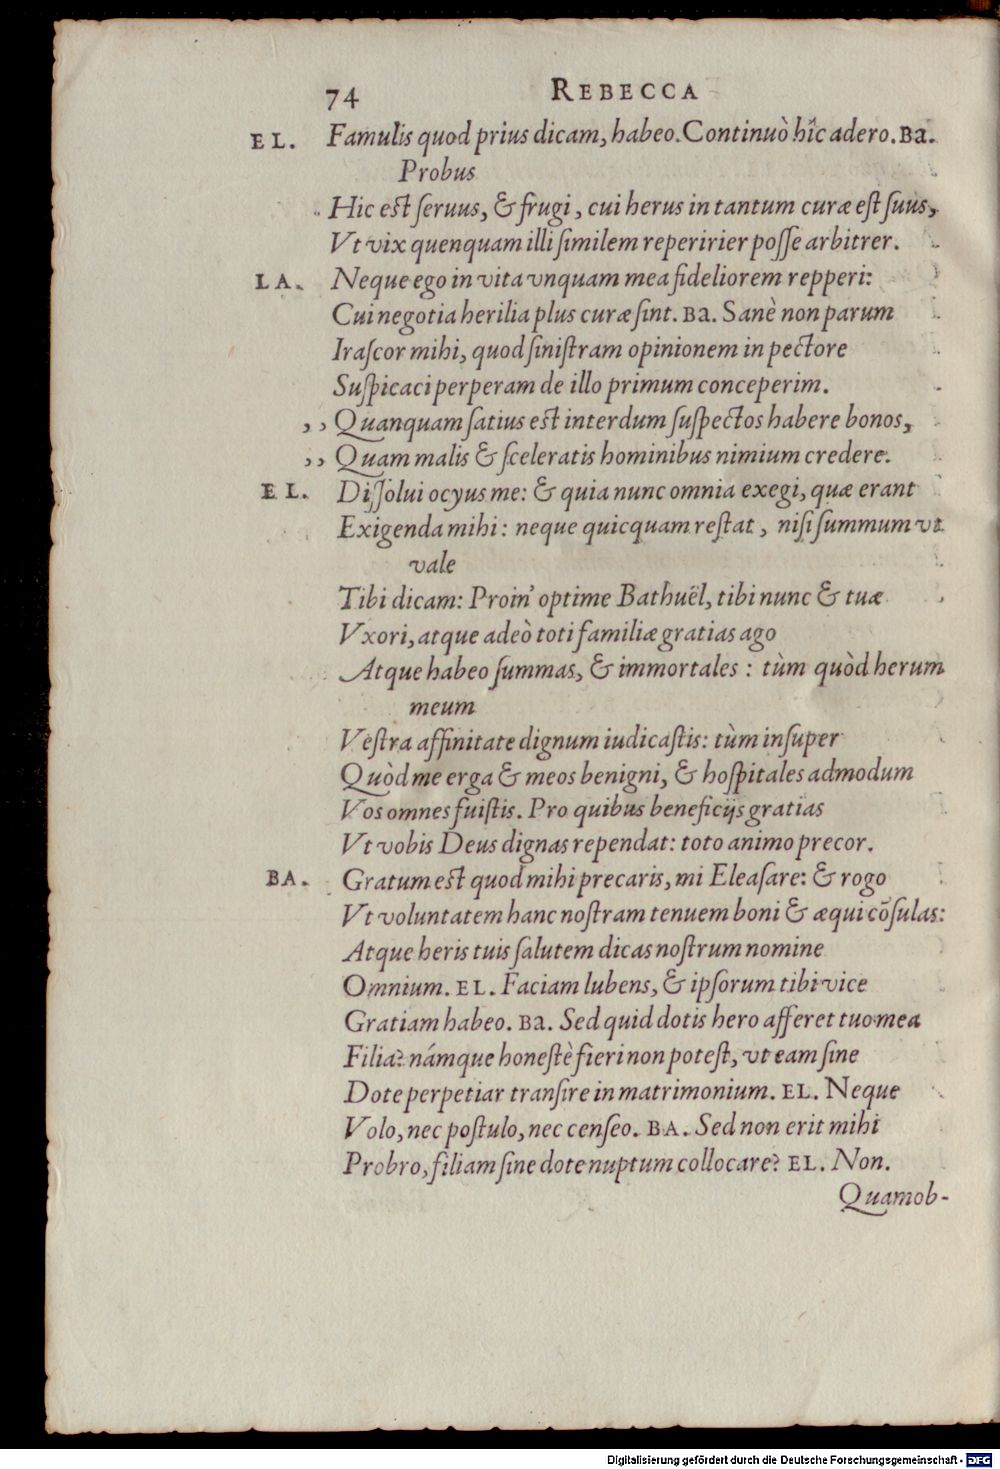 74 REBECCA
EL. Famulis quod prius dicam, habeo. Continuò hîc adero. Ba.
Probus
Hic est ſeruus, & frugi, cui herus in tantum curæ eſt ſuus,
Vt vix quenquam illi ſimilem reperirier poſſe arbitrer.
LA. Neque ego in vita vnquam mea fideliorem repperi:
Cui negotia herilia plus curæ ſint. Ba. Sanè non parum
Iraſcor mihi, quod ſiniſtram opinionem in pectore
Suſpicaci perperam de illo primum conceperim.
,, Quanquam ſatius est interdum ſuſpectos habere bonos,
,, Quam malis & ſceleratis hominibus nimium credere.
EL. Diſſolui ocyus me: & quia nunc omnia exegi, quæ erant
Exigenda mihi: neque quicquam reſtat, niſi ſummum vt
vale
Tibi dicam: Proin' optime Bathuël, tibi nunc & tuæ
Vxori, atque adeò toti familiæ gratias ago
Atque habeo ſummas, & immortales: tùm quòd herum
meum
Veſtra affinitate dignum iudicaſtis: tùm inſuper
Quòd me erga & meos benigni, & hoſpitales admodum
Vos omnes fuiſtis. Pro quibus beneficijs gratias
Vt vobis Deus dignas rependat: toto animo precor.
BA. Gratum est quod mihi precaris, mi Eleaſare: & rogo
Vt voluntatem hanc noſtram tenuem boni & æqui cõſulas:
Atque heris tuis ſalutem dicas noſtrum nomine
Omnium. EL. Faciam lubens, & ipſorum tibi vice
Gratiam habeo. Ba. Sed quid dotis hero afferet tuo mea
Filia? námque honeſtè fieri non poteſt, vt eam ſine
Dote perpetiar tranſire in matrimonium. EL. Neque
Volo, nec poſtulo, nec cenſeo. BA. Sed non erit mihi
Probro, filiam ſine dote nuptum collocare? EL. Non.
Quamob-
Digitalisierung gefördert durch die Deutsche Forschungsgemeinschaft - DFG